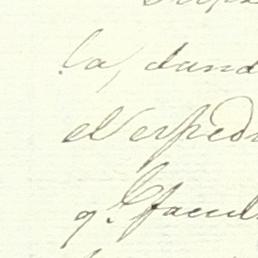 la, dand
el exped
q.e facul